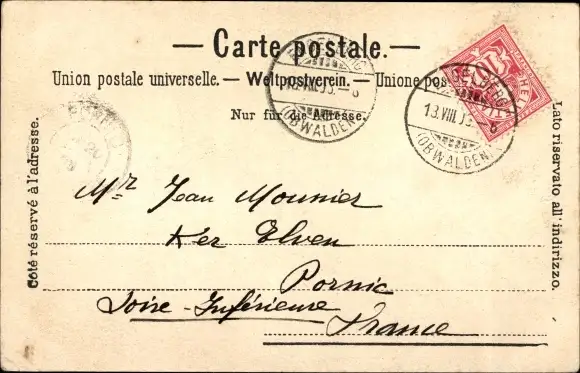 — Carte postale. —
Union postale universelle. — Weltpostverein. — Unione pos
Nur für die Adresse.
Côté réservé à l'adresse.
Lato riservato all' indirizzo.
ENGELBERG
13.VIII.03.–8
(OBWALDEN)
ENGELBERG
13.VIII.03.–8
(OBWALDEN)
HELVETIA
10
Mr Jean Mounier
Ker Elven
Pornic
Loire-Inférieure
France